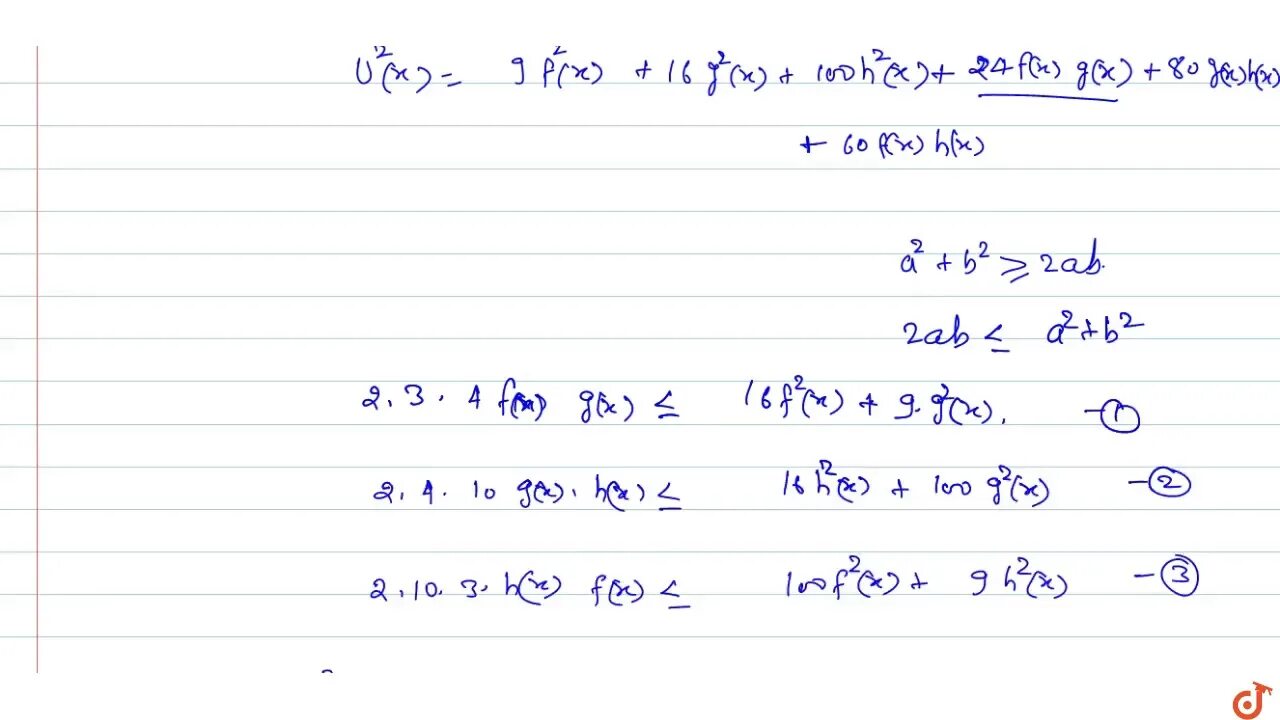 U²(x) = 9 f²(x) + 16 g²(x) + 100 h²(x) + 24 f(x) g(x) + 80 g(x) h(x)
+ 60 f(x) h(x)
a² + b² ⩾ 2ab.
2ab ≤ a² + b²
2.3.4 f(x) g(x) ≤ 16 f²(x) + 9. g²(x). -①
2.4.10 g(x). h(x) ≤ 16 h²(x) + 100 g²(x) -②
2.10.3. h(x) f(x) ≤ 100 f²(x) + 9 h²(x) -③